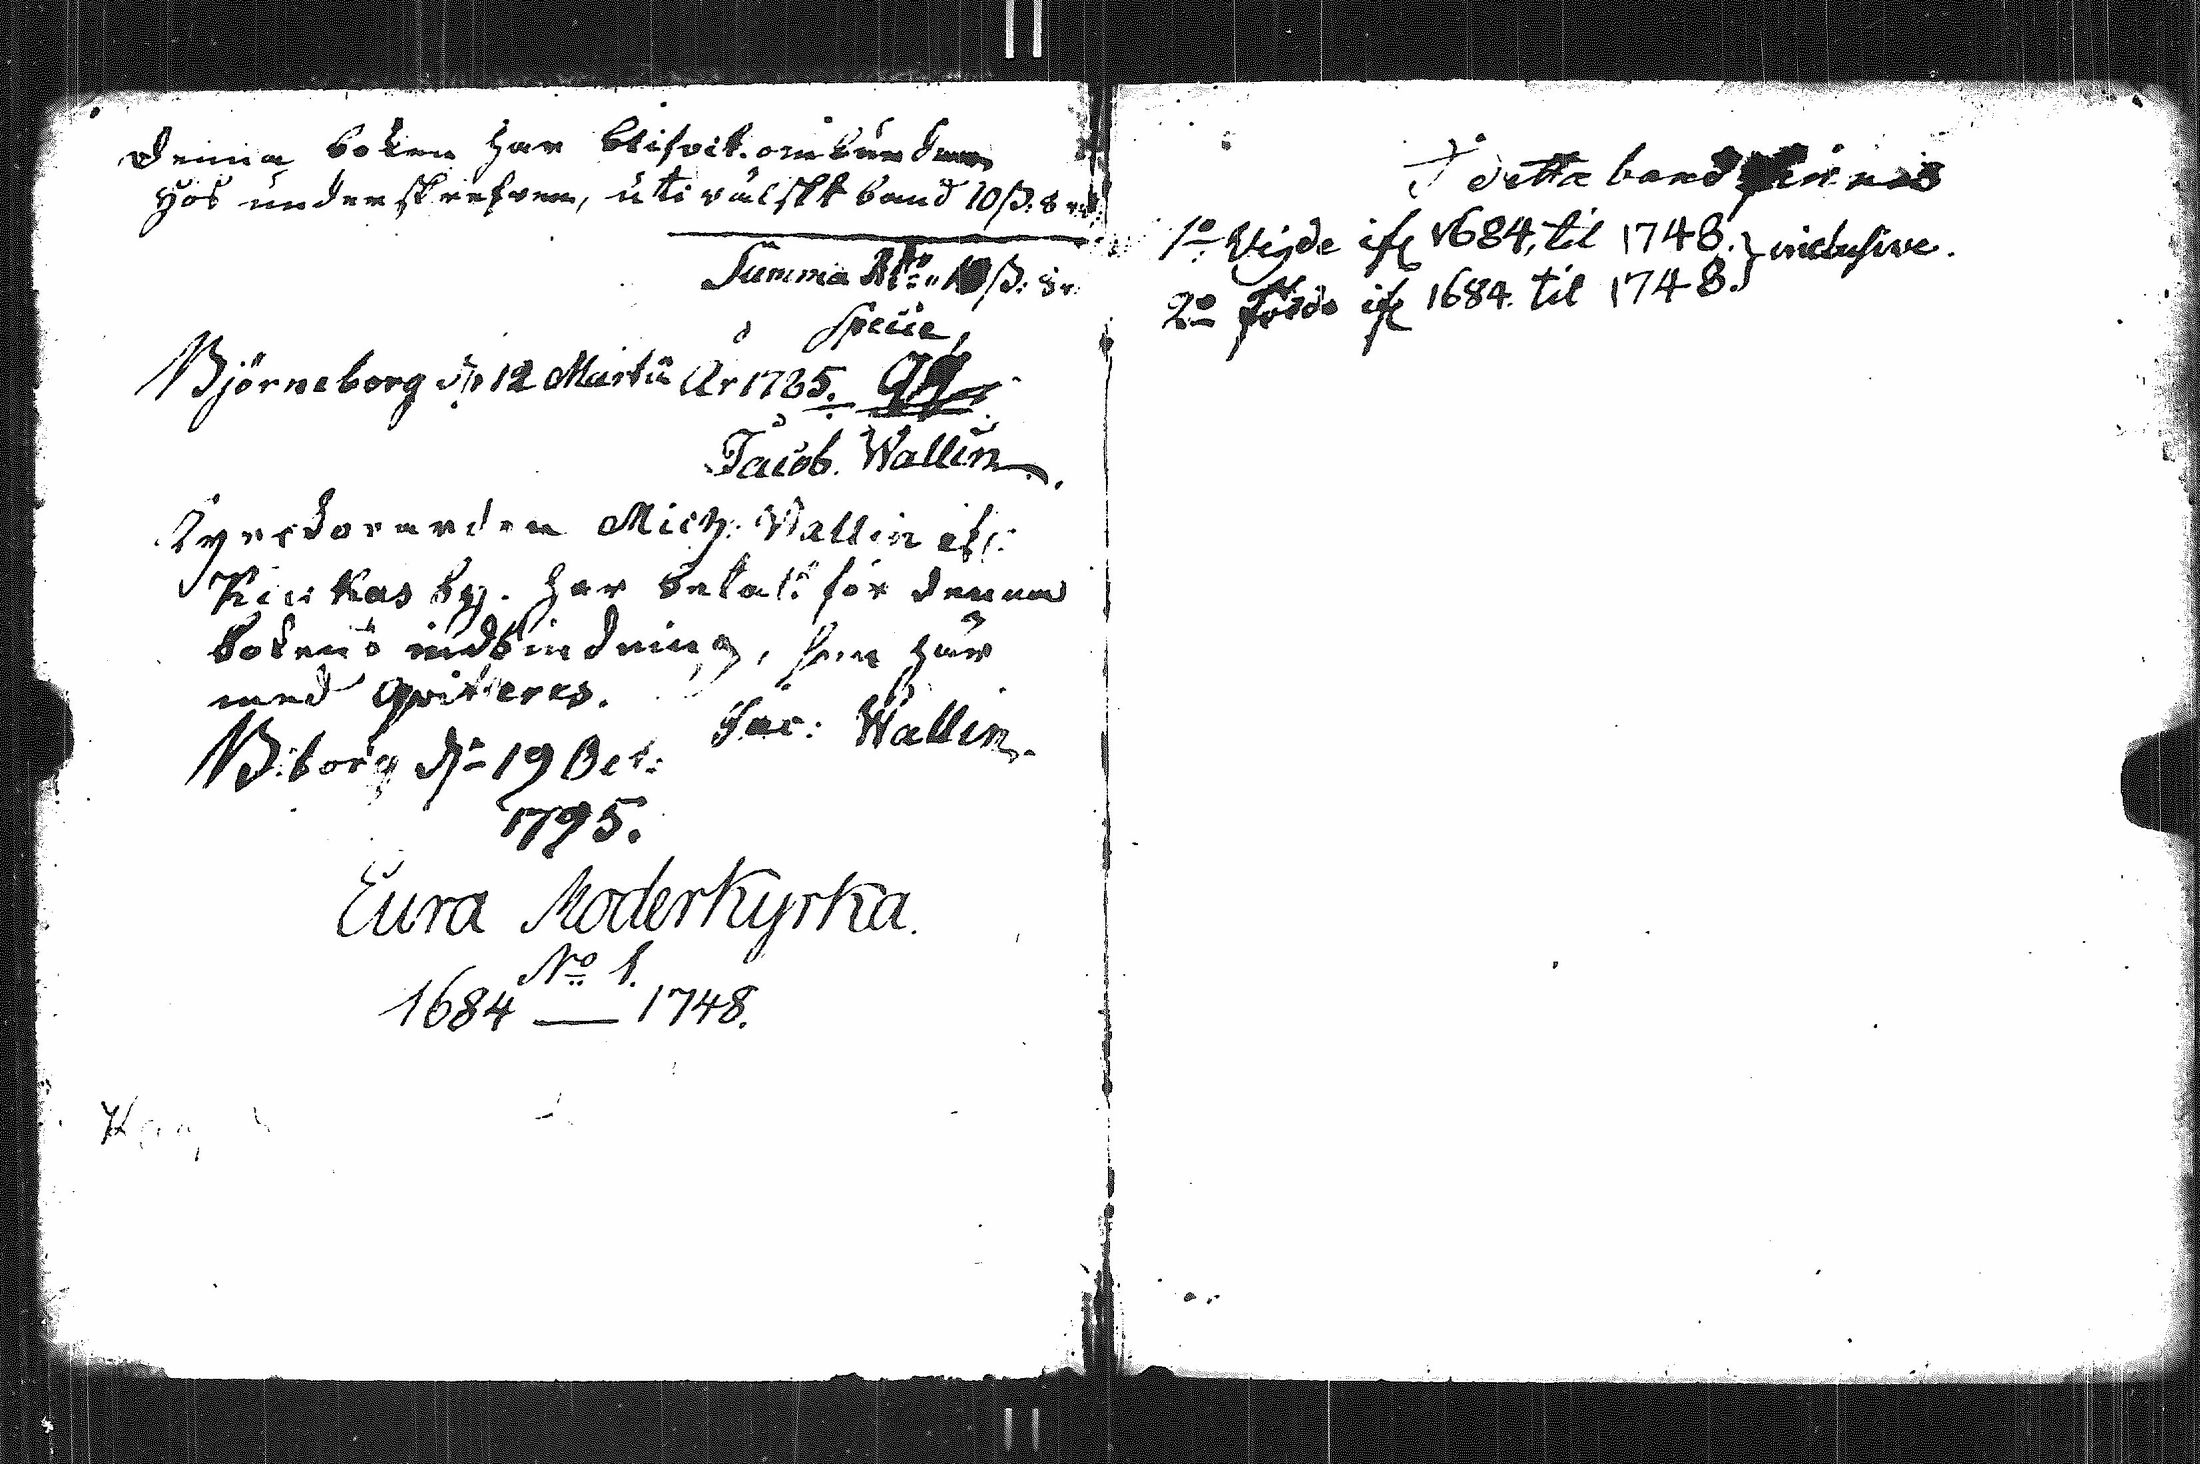 Denna boken har blifvit ombunden
hos underskrefven, uti välskt band 10 ß. 8 rst
Summa Rdr 10 ß: 8 r.
Specie,
Björneborg d. 12 Martii År 1785.
Jacob. Wallin.
Kyrckovärden Mich: Wallin ifr:
Kiukas by. har betalt för denna
bokens indbindning, som här
med qvitteres.
Jac: Wallin.
B:borg dn 19 Oct:
1795.
Eura Moderkyrka.
No 1.
1684 — 1748.
I detta band finnes
1o Vigde ifr 1684, til 1748. } inclusive.
2o födde ifr 1684. til 1748.